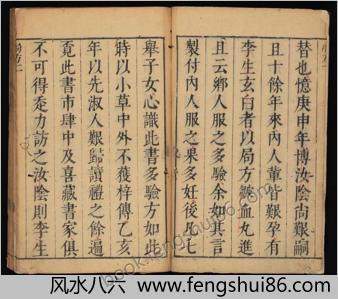 替也憶庚申年博汝陰尚艱嗣
且十餘年來內人輩皆艱孕有
李生玄白者以局方皴血丸進
且云鄉人服之多驗余如其言
製付內人服之果多妊後凡七
舉子女心識此書多驗方如此
時以小草中外不獲梓傳乙亥
年以先淑人艱歸讀禮之餘遍
覓此書市肆中及喜藏書家俱
不可得亟力訪之汝陰則李生
风水八六
www.fengshui86.com